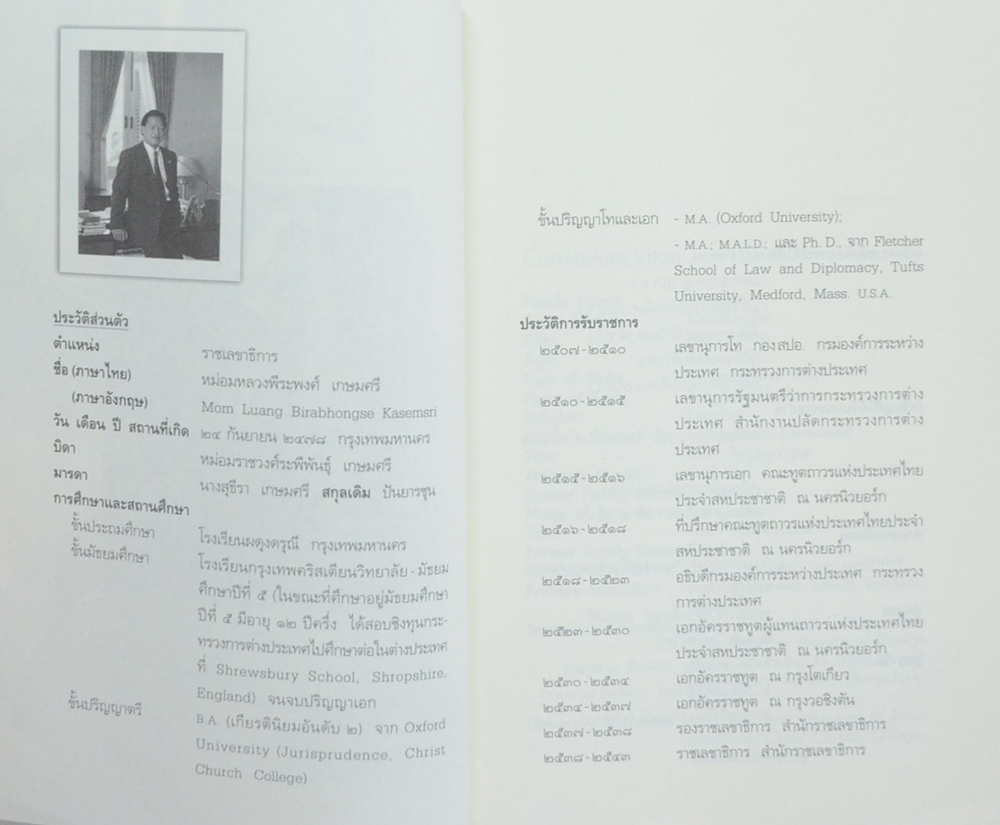 ประวัติส่วนตัว
ตำแหน่ง ราชเลขาธิการ
ชื่อ (ภาษาไทย) หม่อมหลวงพีระพงศ์ เกษมศรี
(ภาษาอังกฤษ) Mom Luang Birabhongse Kasemsri
วัน เดือน ปี สถานที่เกิด ๒๔ กันยายน ๒๔๗๘ กรุงเทพมหานคร
บิดา หม่อมราชวงศ์ระพีพันธุ์ เกษมศรี
มารดา นางสุธีรา เกษมศรี สกุลเดิม ปันยารชุน
การศึกษาและสถานศึกษา
ชั้นประถมศึกษา โรงเรียนผดุงดรุณี กรุงเทพมหานคร
ชั้นมัธยมศึกษา โรงเรียนกรุงเทพคริสเตียนวิทยาลัย - มัธยม
ศึกษาปีที่ ๕ (ในขณะที่ศึกษาอยู่มัธยมศึกษา
ปีที่ ๕ มีอายุ ๑๒ ปีครึ่ง ได้สอบชิงทุนกระ-
ทรวงการต่างประเทศไปศึกษาต่อในต่างประเทศ
ที่ Shrewsbury School, Shropshire,
England) จนจบปริญญาเอก
ชั้นปริญญาตรี B.A. (เกียรตินิยมอันดับ ๒) จาก Oxford
University (Jurisprudence, Christ
Church College)
ชั้นปริญญาโทและเอก - M.A. (Oxford University);
- M.A.; M.A.L.D.; และ Ph. D., จาก Fletcher
School of Law and Diplomacy, Tufts
University, Medford, Mass. U.S.A.
ประวัติการรับราชการ
๒๕๐๗ - ๒๕๑๐ เลขานุการโท กองสปอ. กรมองค์การระหว่าง
ประเทศ กระทรวงการต่างประเทศ
๒๕๑๐ - ๒๕๑๕ เลขานุการรัฐมนตรีว่าการกระทรวงการต่าง
ประเทศ สำนักงานปลัดกระทรวงการต่าง
ประเทศ
๒๕๑๕ - ๒๕๑๖ เลขานุการเอก คณะทูตถาวรแห่งประเทศไทย
ประจำสหประชาชาติ ณ นครนิวยอร์ก
๒๕๑๖ - ๒๕๑๘ ที่ปรึกษาคณะทูตถาวรแห่งประเทศไทยประจำ
สหประชาชาติ ณ นครนิวยอร์ก
๒๕๑๘ - ๒๕๒๓ อธิบดีกรมองค์การระหว่างประเทศ กระทรวง
การต่างประเทศ
๒๕๒๓ - ๒๕๓๐ เอกอัครราชทูตผู้แทนถาวรแห่งประเทศไทย
ประจำสหประชาชาติ ณ นครนิวยอร์ก
๒๕๓๐ - ๒๕๓๔ เอกอัครราชทูต ณ กรุงโตเกียว
๒๕๓๔ - ๒๕๓๗ เอกอัครราชทูต ณ กรุงวอชิงตัน
๒๕๓๗ - ๒๕๓๘ รองราชเลขาธิการ สำนักราชเลขาธิการ
๒๕๓๘ - ๒๕๔๓ ราชเลขาธิการ สำนักราชเลขาธิการ